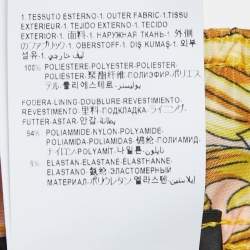 1.TESSUTO ESTERNO-1.OUTER FABRIC-1.TISSU
EXTERIEUR-1.TEJIDO EXTERNO-1.TECIDO
EXTERIOR-1.面料-1.НАРУЖНАЯ ТКАНЬ-1.外側
のファブリック-1.OBERSTOFF-1.DIŞ KUMAŞ-1.외부
섬유-1.ليف خارجي
100% POLIESTERE-POLYESTER-POLYESTER-
POLIESTER-POLIESTER-聚酯纤维-ПОЛИЭФИР-ポリエス
テル-폴리에스테르-بوليستر
FODERA-LINING-DOUBLURE-REVESTIMIENTO-
REVESTIMENTO-里料-ПОДКЛАДКА-ライニング-
FUTTER-ASTAR-안감-بطانة
94% POLIAMMIDE-NYLON-POLYAMIDE-
POLIAMIDA-POLIAMIDAS-锦纶-ПОЛИАМИД-
ナイロン-POLYAMIT-나일론-نايلون
6% ELASTAN-ELASTANE-ELASTHANNE-
ELASTANO-氨纶-ЭЛАСТОМЕРНЫЙ
МАТЕРИАЛ-ポリウレタン-엘라스텐-إيلاستين